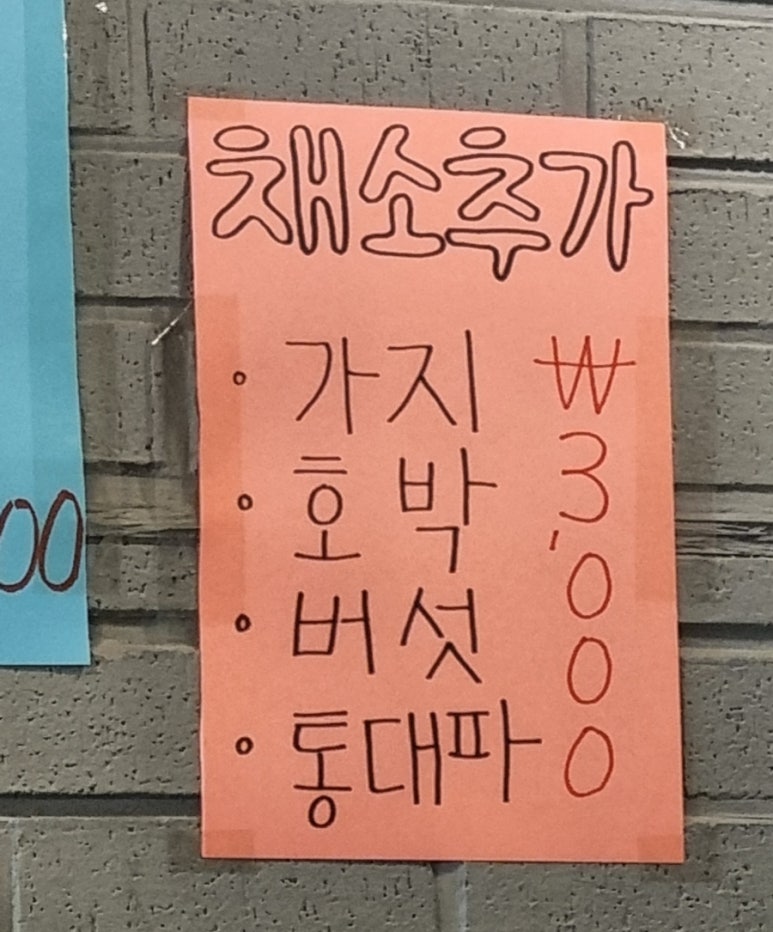 채소추가
· 가지
· 호박
· 버섯
· 통대파
₩3,000
00